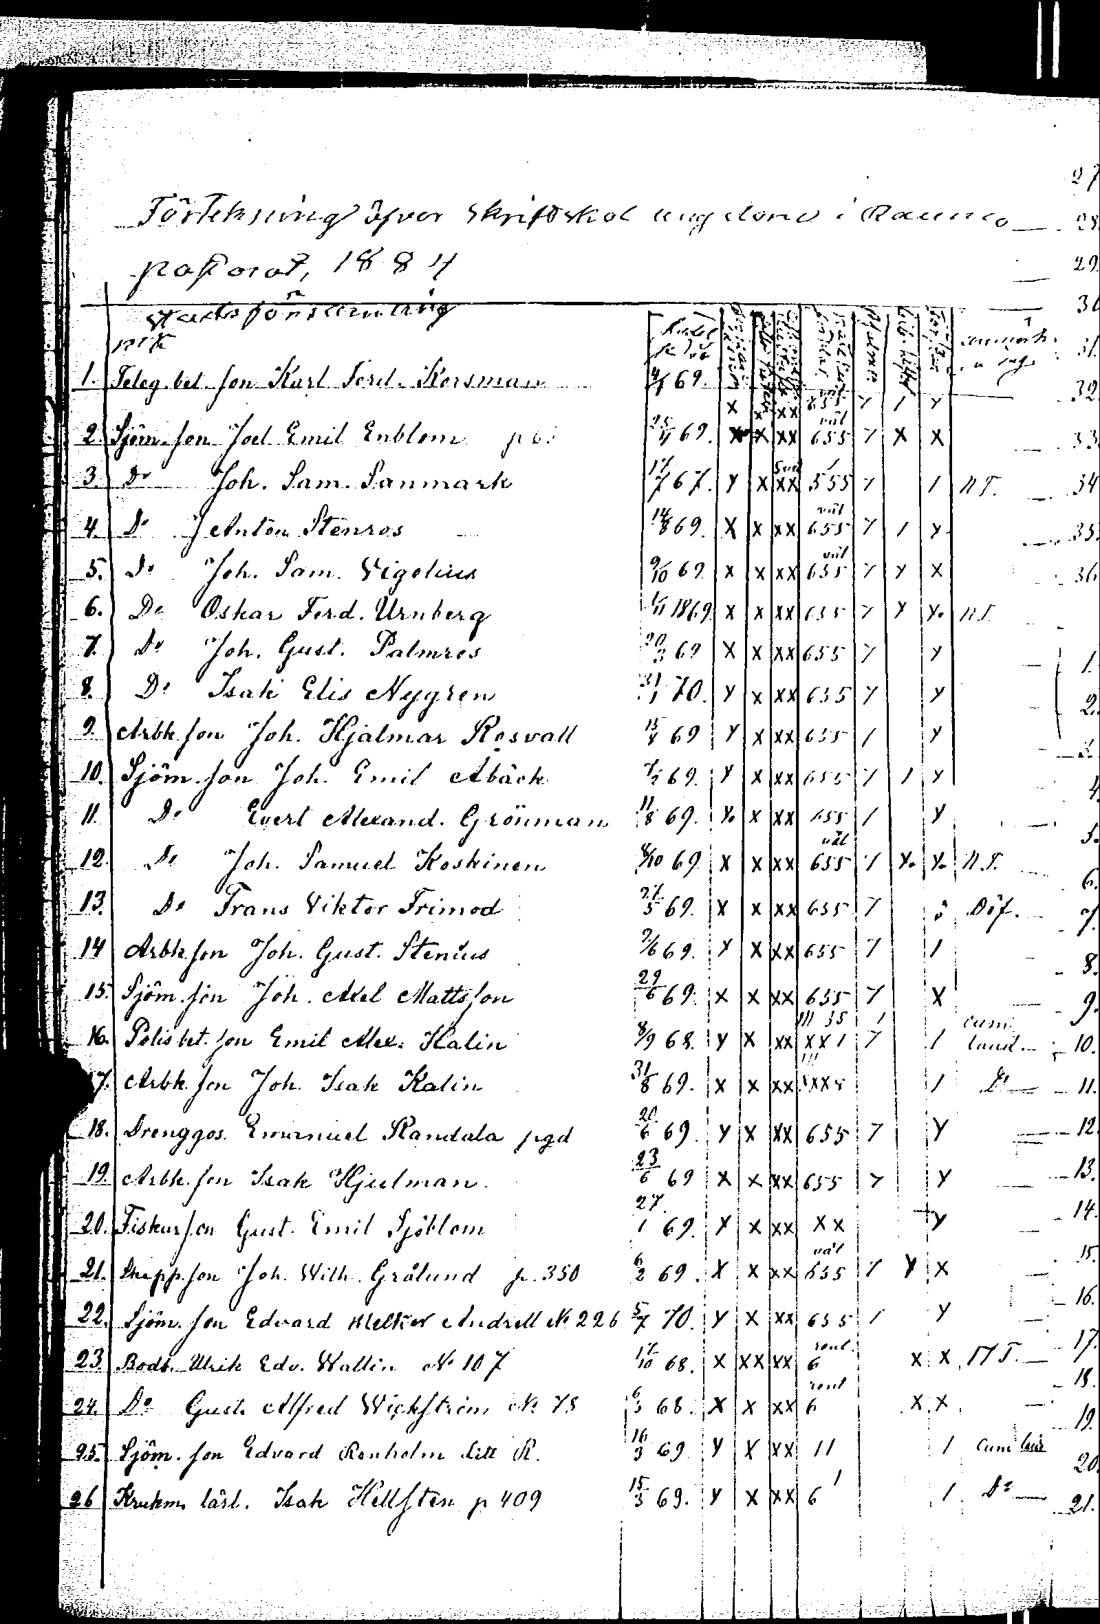 Förtekning öfver Skriftskol ungdomen i Raumo
pastorat, 1884
stadsförsamling
1. Teleg. bet. son Karl Ferd. Korsman 69. x x xx 655
2. Sjöm. son Joel Emil Enblom 69. x x xx väl 655 7 x x
3. Do Joh. Sam. Sanmark 17/7 67. y x xx 555 7 1 N.T.
4. Do J Anton Stenros 14/8 69. x x xx väl 655 7 1 y
5. Do Joh. Sam. Vigelius 9/10 69 x x xx väl 655 7 y x
6. Do Oskar Ferd. Urnberg 1869 x x xx 655 7 y y. N.T.
7. Do Joh. Gust. Palmros 20/3 69 x x xx 655 7 y
8. Do Isak Elis Nygren 31/1 70. y x xx 655 7 y
9. Arbk. son Joh. Hjalmar Rosvall 69 y x xx 655 1 y
10. Sjöm. son Joh. Emil Abäck 69. y x xx 655 7 1 y
11. Do Evert Alexand. Grönman 11/8 69. y. x xx 655 1 y
12. Do Joh. Samuel Koskinen 8/10 69. x x xx väl 655 7 y. y. N.T.
13. Do Frans Viktor Frimod 27/5 69. x x xx 655 7 Döf.
14 Arbk. son Joh. Gust. Stenius 69. y x xx 655 7 1
15. Sjöm. son Joh. Axel Mattsson 29/6 69. x x xx 655 7 x
16. Polisbet. son Emil Alex. Kalin 8/9 68. y x xx 7 1 cum laud.
17. Arbk. son Joh. Isak Kalin 31/8 69. x x xx 1 Do
18. Drenggos. Emanuel Randala pgd 20/6 69. y x xx 655 7 y
19. Arbk. son Isak Hjulman. 23/6 69 x x xx 655 7 y
20. Fiskar son Gust. Emil Sjöblom 27/1 69. y x xx xx y
21. Skepp. son Joh. Wilh. Grålund p. 350 6/2 69. x x xx väl 655 7 y x
22. Sjöm. son Edvard Melker Andrell No 226 5/7 70. y x xx 655 1 y
23. Bodb. Ulrik Edv. Wallin No 107 17/10 68. x xx xx 6 x x
24. Do Gust. Alfred Wickström No 78 6/3 68. x x xx 6 x x
25. Sjöm. son Edvard Renholm Litt R. 16/3 69. y x xx 11 1
26 Krukm. lärl. Isak Hellsten p 409 15/3 69. y x xx 6 1 1 Do
27
28.
29.
30
31.
32.
33.
34
35.
36
1.
2.
3.
4.
5.
6.
7.
8.
9.
10.
11.
12
13.
14.
15.
16.
17.
18.
19.
20
21.